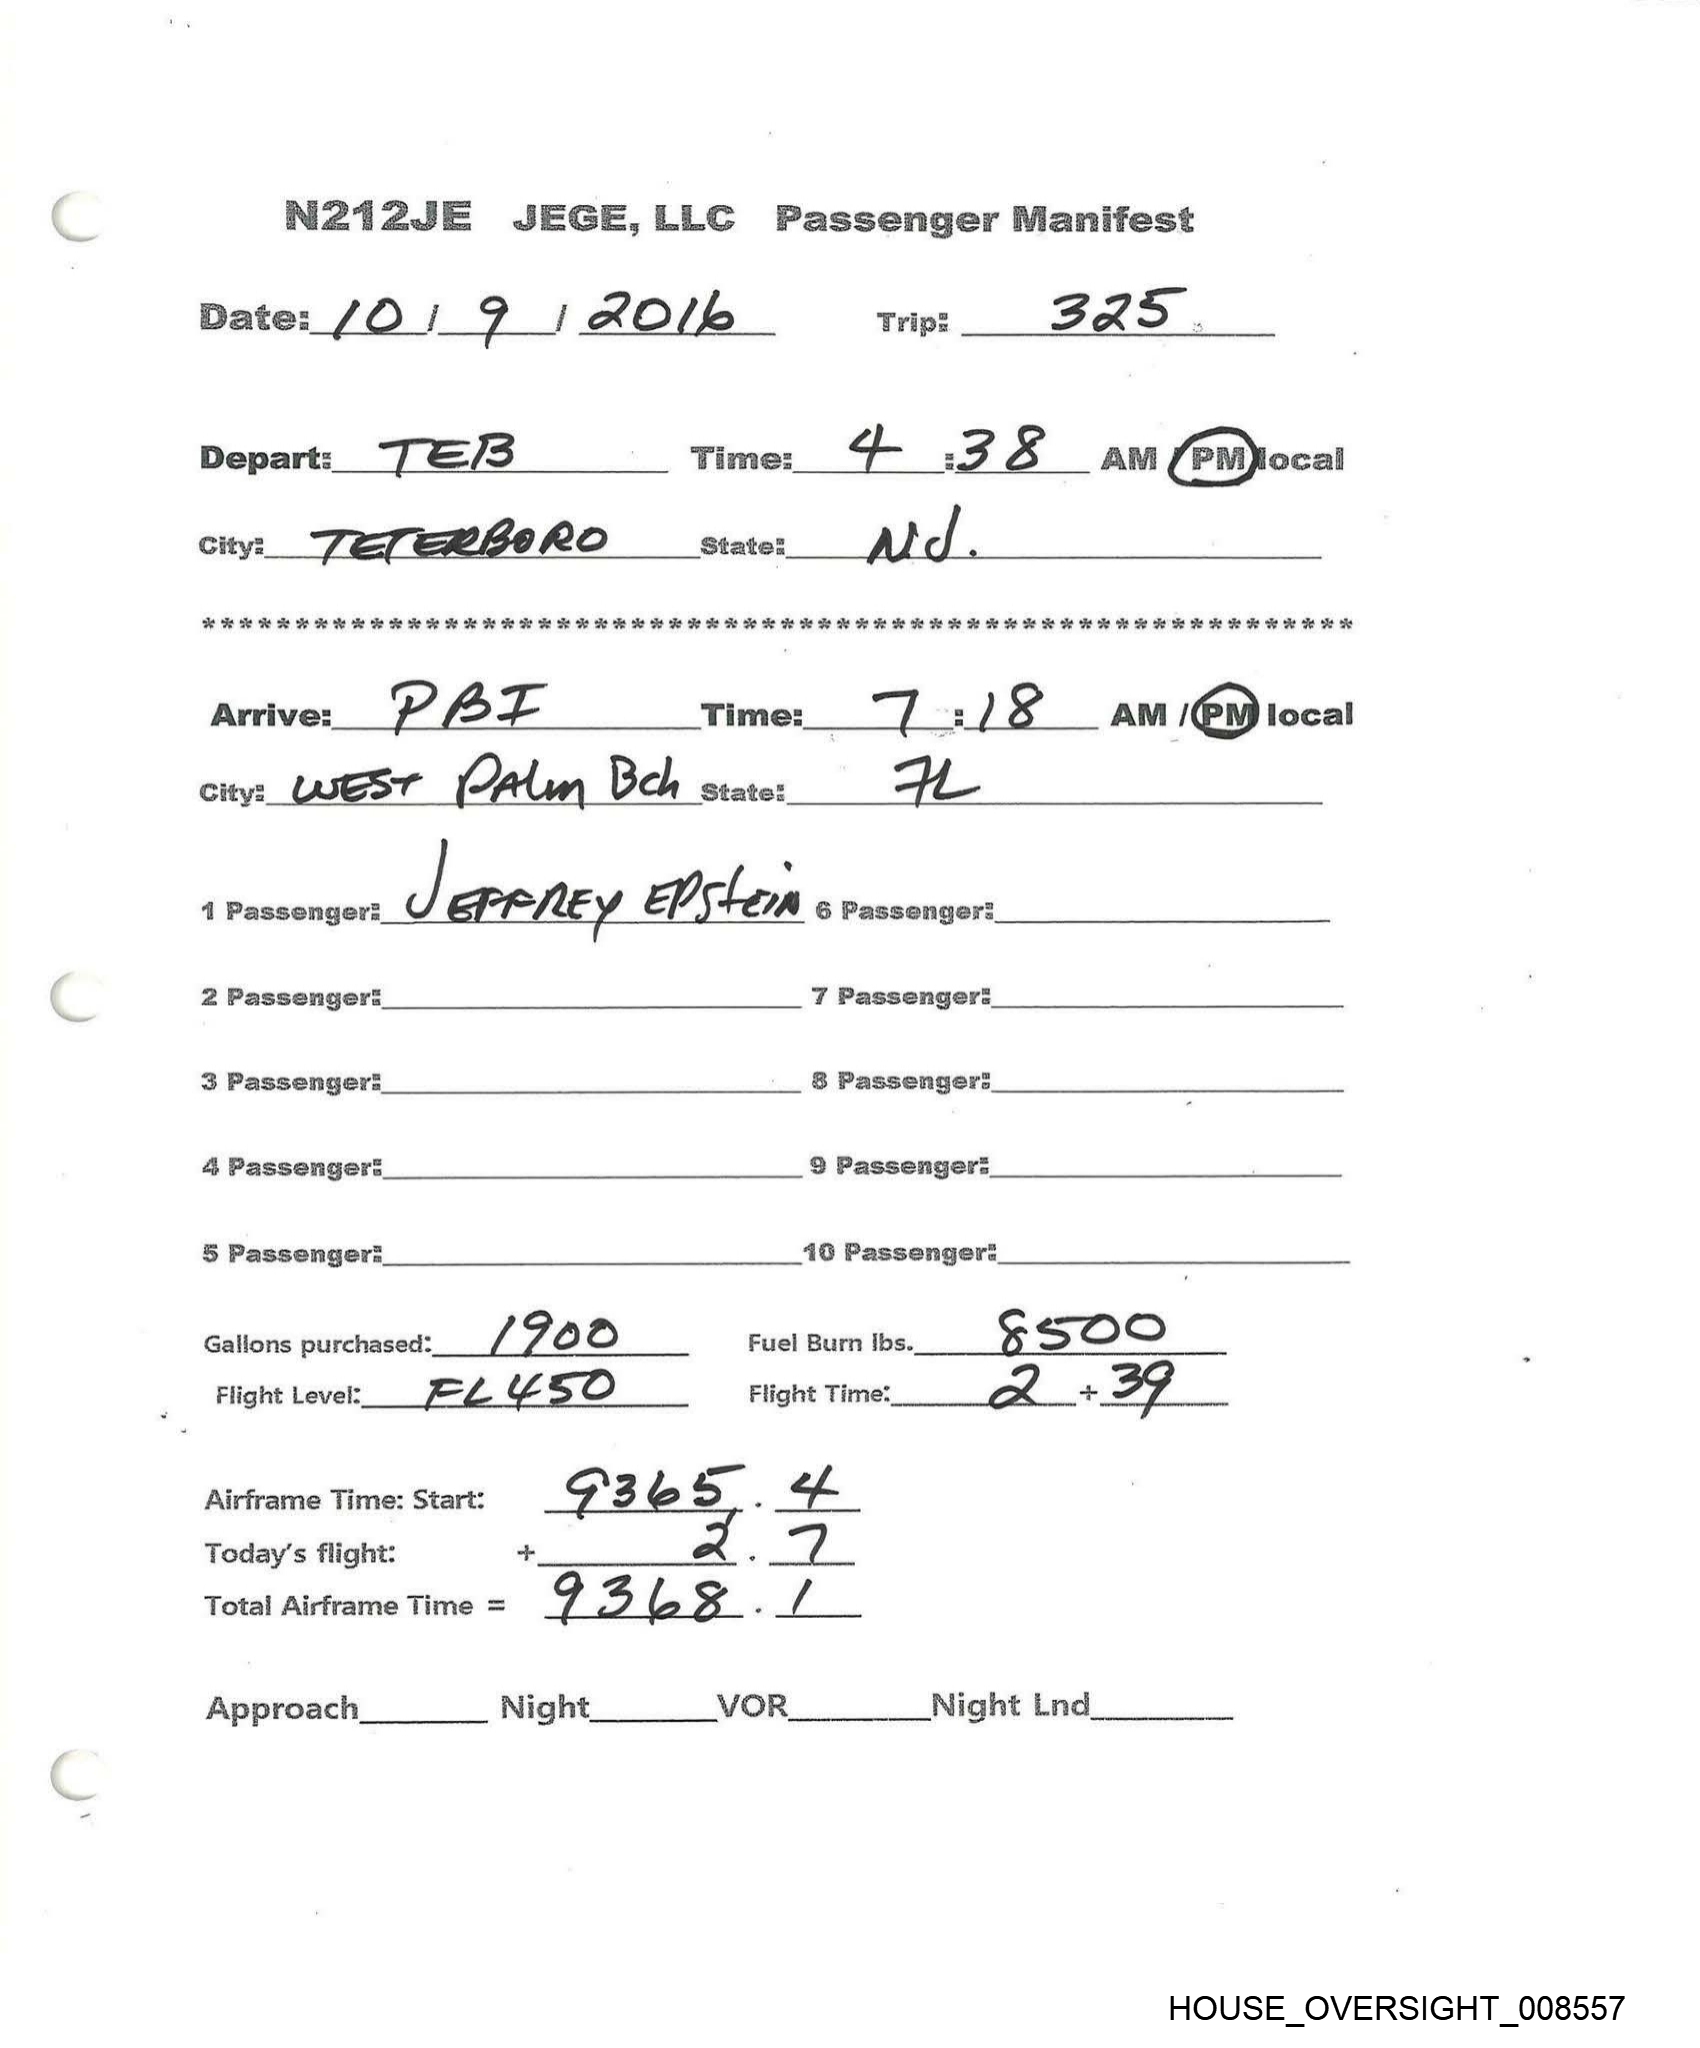 N212JE JEGE, LLC Passenger Manifest
Date: 10 / 9 / 2016 Trip: 325
Depart: TEB Time: 4 :38 AM / PM local
City: TETERBORO State: NJ.
**************************************************************
Arrive: PBI Time: 7 :18 AM / PM local
City: WEST PAlm Bch State: FL
1 Passenger: JEFFREY EPStEIN 6 Passenger:
2 Passenger: 7 Passenger:
3 Passenger: 8 Passenger:
4 Passenger: 9 Passenger:
5 Passenger: 10 Passenger:
Gallons purchased: 1900 Fuel Burn lbs. 8500
Flight Level: FL450 Flight Time: 2 + 39
Airframe Time: Start: 9365 . 4
Today's flight: + 2 . 7
Total Airframe Time = 9368 . 1
Approach Night VOR Night Lnd
HOUSE_OVERSIGHT_008557